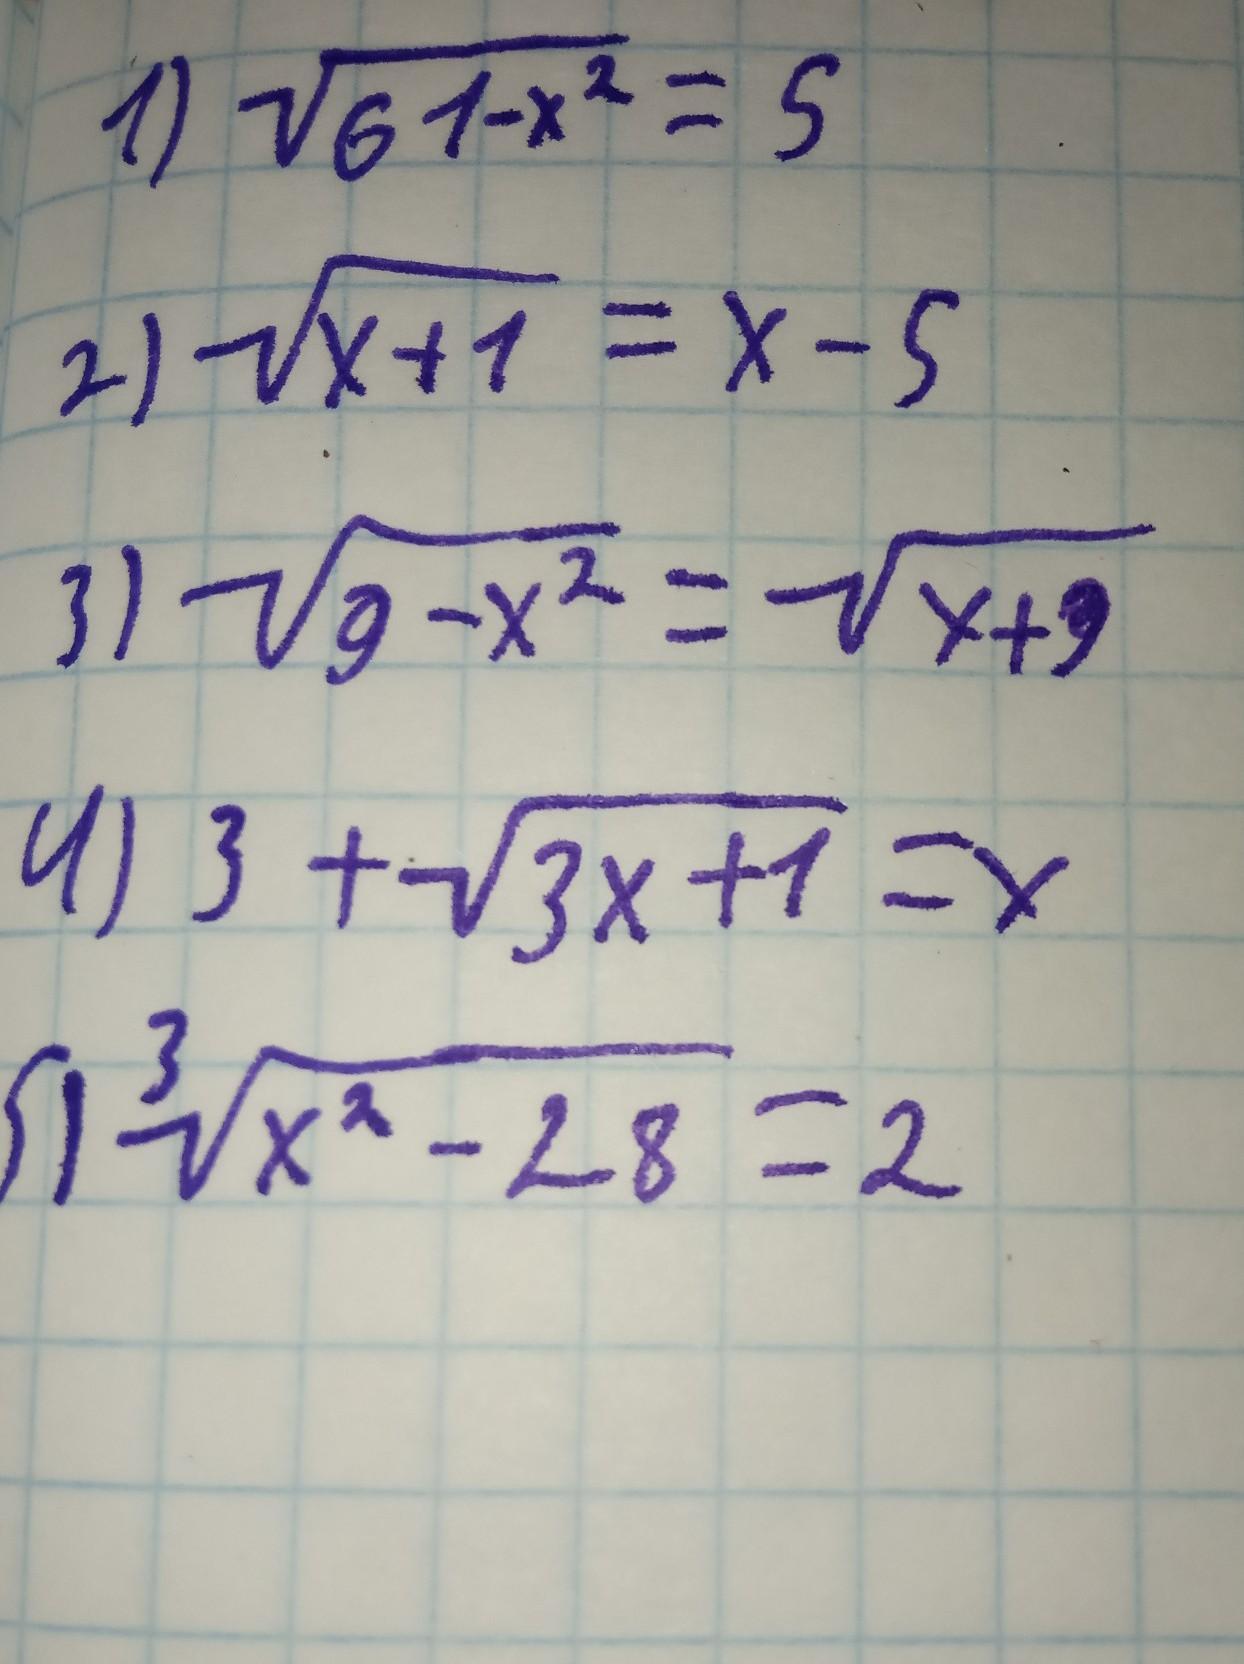 1) √61-x² = 5
2) √x+1 = x-5
3) √9-x² = √x+9
4) 3 + √3x+1 = x
5) ³√x² - 28 = 2